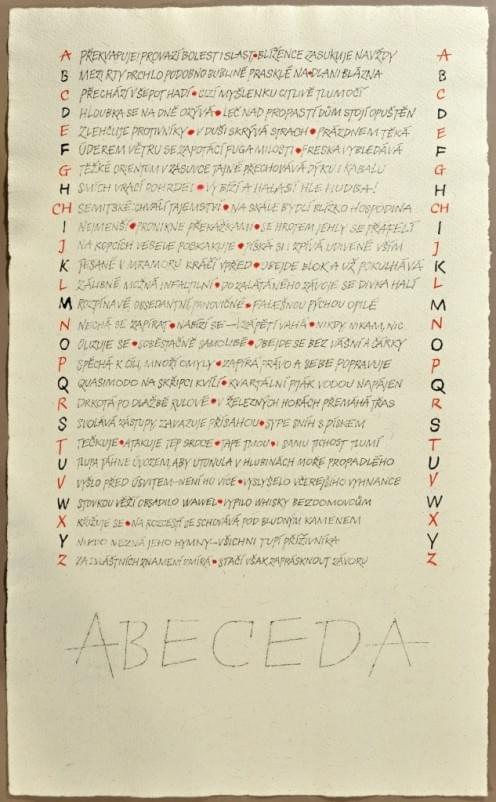 A PŘEKVAPUJE I PROVAZÍ BOLEST I SLAST • BLÍŽENCE ZASUKUJE NAVŽDY A
B MEZI RTY PRCHLO PODOBNO BUBLINĚ PRASKLÉ NA • DLANI BLÁZNA B
C PŘECHÁZÍ V ŠEPOT HADÍ • CIZÍ MYŠLENKU CITLIVĚ TLUMOČÍ C
D HLOUBKA SE NA DNĚ OZÝVÁ • LEČ NAD PROPASTÍ DŮM STOJÍ OPUŠTĚN D
E ZLEHČUJE PROTIVNÍKY • V DUŠI SKRÝVÁ STRACH • PRÁZDNEM TĚKÁ E
F ÚDEREM VĚTRU SE ZAPOTÁCÍ FUGA MILOSTI • FRESKA VYBLEDÁVÁ F
G TĚŽKÉ ORIENTEM V ZÁSUVCE TAJNĚ PŘECHOVÁVÁ DÝKU I KABALU G
H SMÍCH VRACÍ POHRDEL • VYBÍZÍ A HALASÍ HLE HUDBA! H
CH SEMITSKÉ CHVÁLÍ TAJEMSTVÍ • NA SKÁLE BYDLÍ BLÍZKO HOSPODINA CH
I NEJMENŠÍ • PRONIKNE PŘEKÁŽKAMI • SE HROTEM JEHLY SE PŘÁTELÍ I
J NA KOPCÍCH VESELE POSKAKUJE • PÍSKÁ SI I ZPÍVÁ UDIVENĚ VŠÍM J
K TESANÉ V MRAMORU KRÁČÍ VPŘED • OBEJDE BLOK A UŽ POKULHÁVÁ K
L ZÁLIBNĚ MOŽNÁ INFALTILNÍ • DO ZALÁTANÉHO ZÁVOJE SE DÍVKA HALÍ L
M ROZPÍNAVÉ OBSEDANTNÍ PANOVIČNÉ • FALEŠNOU PÝCHOU OPILÉ M
N NECHÁ SE ZAPÍRAT • NABÍZÍ SE — VZÁPĚTÍ VÁHÁ • NIKDY, NIKAM, NIC N
O OLIZUJE SE • SOBĚSTAČNĚ SAMOLIBÉ • OBEJDE SE BEZ VÁŠNÍ A ČÁRKY O
P SPĚCHÁ K CÍLI, MNOŽÍ OMYLY • ZAPÍRÁ PRÁVO A SEBE POPRAVUJE P
Q QUASIMODO NA SKŘIPCI KVÍLÍ • KVARTÁLNÍ PIJÁK VODOU NAPÁJEN Q
R DRKOTÁ PO DLAŽBĚ RULOVÉ • V ŽELEZNÝCH HORÁCH PŘEMÁHÁ TŘAS R
S SVOLÁVÁ ZÁSTUPY, ZAVAZUJE PŘÍSAHOU • SYPE SNÍH S PÍSKEM S
T TEČKUJE • ATAKUJE TEP SRDCE • TÁPE TMOU • I SAMU TICHOST TLUMÍ T
U TLUPA TÁHNE ÚVOZEM, ABY UTONULA V HLUBINÁCH MOŘE PROPADLÉHO U
V VYŠLO PŘED ÚSVITEM — NENÍ HO VÍCE • VYSLYŠELO VČEREJŠÍHO VYHNANCE V
W STOVKOU VĚŽÍ OBSADILO WAWEL • VYPILO WHISKY BEZDOMOVCŮM W
X KŘIŽUJE SE • NA ROZCESTÍ SE SCHOVÁVÁ POD BLUDNÝM KAMENEM X
Y NIKDO NEZNÁ JEHO HYMNY — VŠICHNI TUPÍ PŘÍŽIVNÍKA Y
Z ZA ZVLÁŠTNÍCH ZNAMENÍ ZMÍRÁ • STAČÍ VŠAK ZAPRÁSKNOUT ZÁVORU Z
ABECEDA